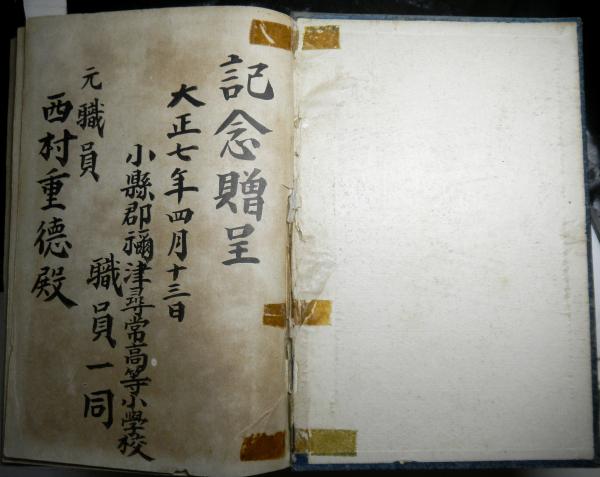 記念贈呈
大正七年四月十三日
小縣郡禰津尋常高等小學校
職員一同
元職員
西村重德殿